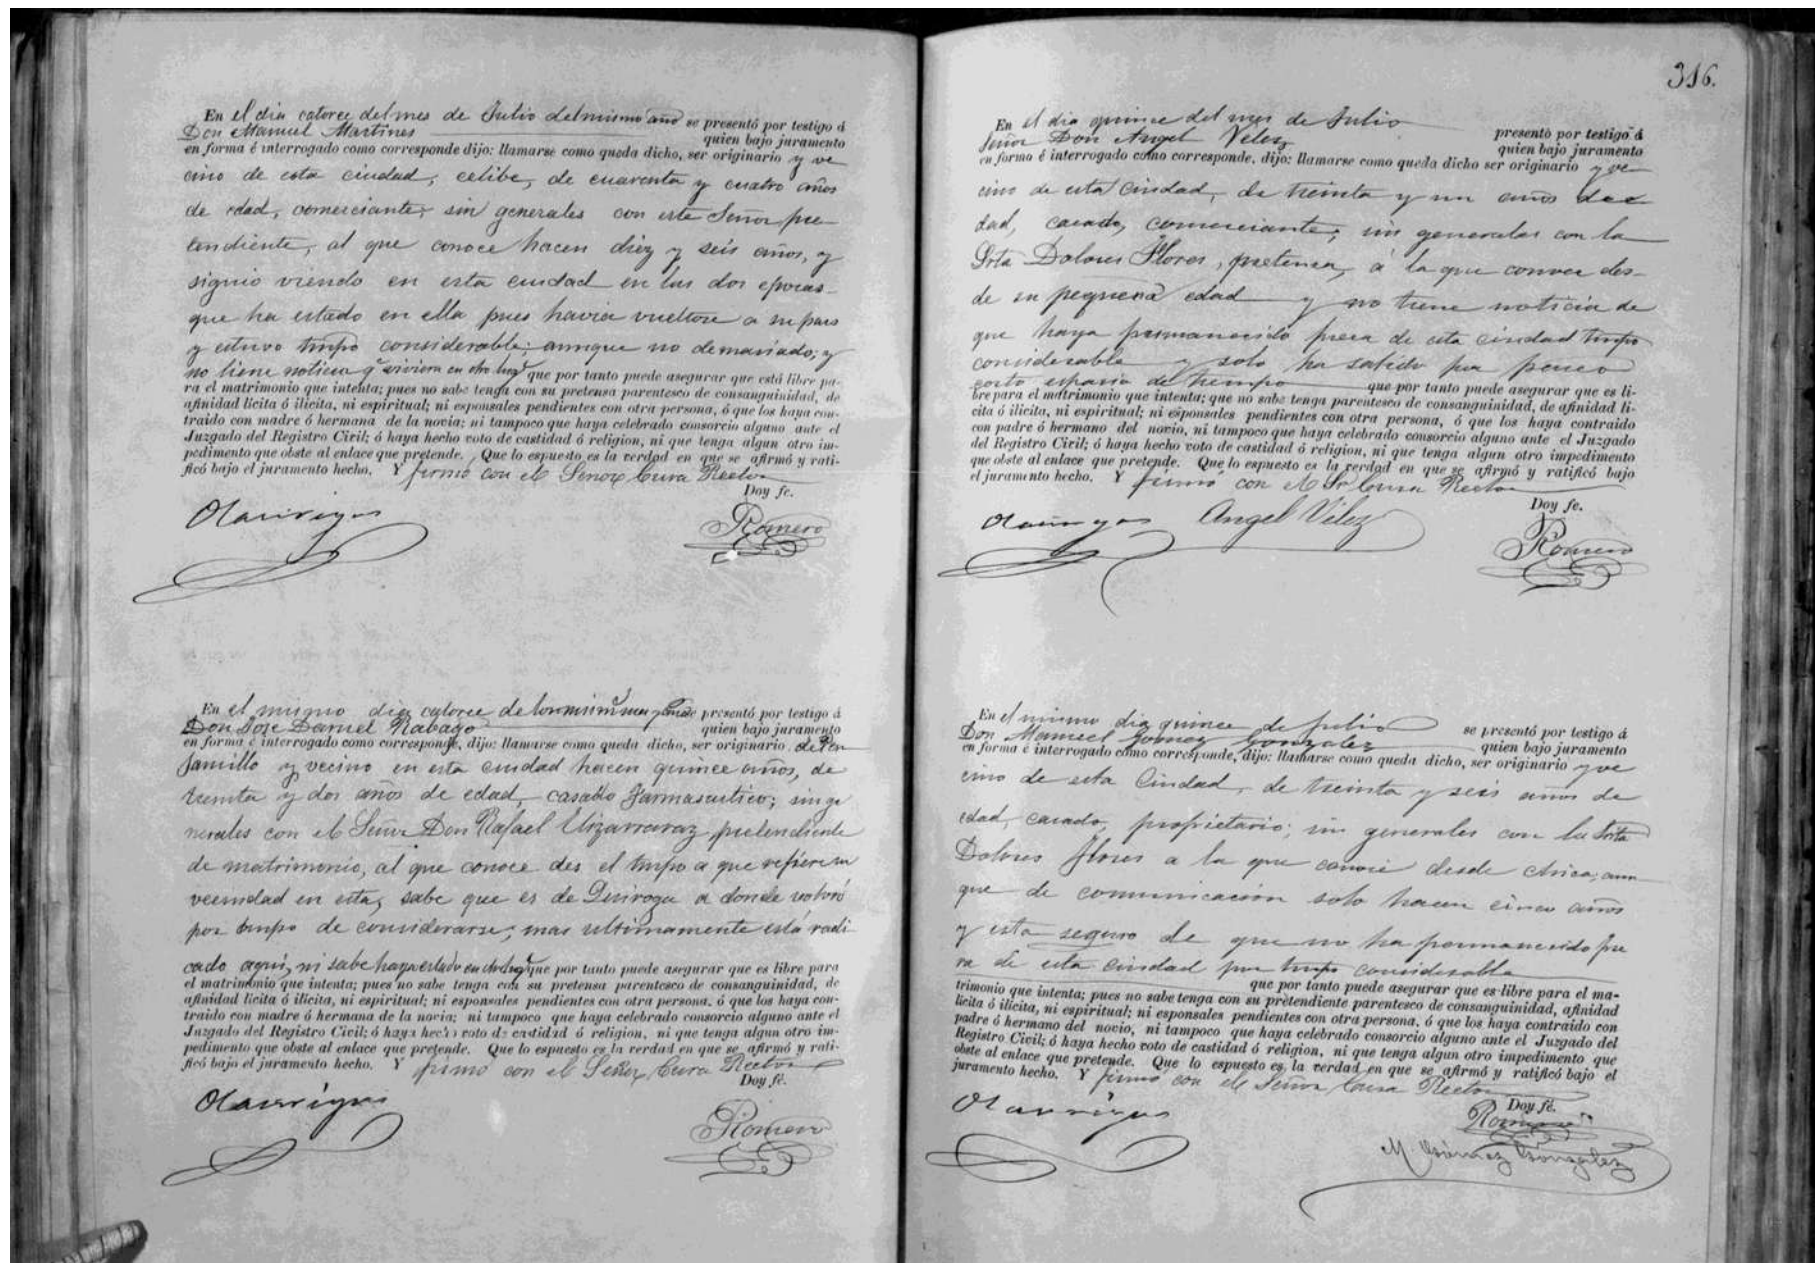 En el dia catorce del mes de Julio del mismo año se presentó por testigo á
Don Manuel Martines quien bajo juramento
en forma é interrogado como corresponde dijo: llamarse como queda dicho, ser originario y ve
cino de esta ciudad, celibe, de cuarenta y cuatro años
de edad, comerciante; sin generales con este Señor pre
tendiente, al que conoce hacen diez y seis años, y
siguio viendo en esta ciudad en las dos epocas
que ha estado en ella pues havia vueltose a su pais
y estuvo tmpo considerable; aunque no demasiado; y
no tiene noticia q viviera en otro lugr que por tanto puede asegurar que está libre pa-
ra el matrimonio que intenta; pues no sabe tenga con su pretensa parentesco de consanguinidad, de
afinidad licita ó ilicita, ni espiritual; ni esponsales pendientes con otra persona, ó que los haya con-
traido con madre ó hermana de la novia; ni tampoco que haya celebrado consorcio alguno ante el
Juzgado del Registro Civil; ó haya hecho voto de castidad ó religion, ni que tenga algun otro im-
pedimento que obste al enlace que pretende. Que lo espuesto es la verdad en que se afirmó y rati-
ficó bajo el juramento hecho. Y firmó con el Señor Cura Rector
Doy fe.
Romero
En el mismo dia catorce de presentó por testigo á
Don Jose Daniel Rabago quien bajo juramento
en forma é interrogado como corresponde, dijo: llamarse como queda dicho, ser originario de Pen
jamillo y vecino en esta ciudad hacen quince años, de
treinta y dos años de edad, casado Farmaseutico; sin ge
nerales con el Señor Don Rafael Urizarraraz pretendiente
de matrimonio, al que conoce des el tmpo a que refiere su
vecindad en esta, sabe que es de Quiroga a donde volvió
por tmpo de considerarse; mas ultimamente está radi
cado aquí, ni sabe haya estado en otro lugr que por tanto puede asegurar que es libre para
el matrimonio que intenta; pues no sabe tenga con su pretensa parentesco de consanguinidad, de
afinidad licita ó ilicita, ni espiritual; ni esponsales pendientes con otra persona, ó que los haya con-
traido con madre ó hermana de la novia; ni tampoco que haya celebrado consorcio alguno ante el
Juzgado del Registro Civil; ó haya hecho voto de castidad ó religion, ni que tenga algun otro im-
pedimento que obste al enlace que pretende. Que lo espuesto es la verdad en que se afirmó y rati-
ficó bajo el juramento hecho. Y firmó con el Señor Cura Rector
Doy fe.
Romero
316.
En el dia quince del mes de Julio presentó por testigo á
Señor Don Angel Velez quien bajo juramento
en forma é interrogado como corresponde, dijo: llamarse como queda dicho ser originario y ve
cino de esta Ciudad, de treinta y un años de e
dad, casado, comerciante; sin generales con la
Srta Dolores Flores, pretensa, á la que conoce des-
de su pequeña edad y no tiene noticia de
que haya permanecido fuera de esta ciudad tmpo
considerable y solo ha salido por
corto espacio de tiempo que por tanto puede asegurar que es li-
bre para el matrimonio que intenta; que no sabe tenga parentesco de consanguinidad, de afinidad li-
cita ó ilicita, ni espiritual; ni esponsales pendientes con otra persona, ó que los haya contraido
con padre ó hermano del novio, ni tampoco que haya celebrado consorcio alguno ante el Juzgado
del Registro Civil; ó haya hecho voto de castidad ó religion, ni que tenga algun otro impedimento
que obste al enlace que pretende. Que lo espuesto es la verdad en que se afirmó y ratificó bajo
el juramento hecho. Y firmó con el Sr Cura Rector
Doy fe.
Angel Vélez
Romero
En el mismo dia quince de julio se presentó por testigo á
Don Manuel Gomez Gonzalez quien bajo juramento
en forma é interrogado como corresponde, dijo: llamarse como queda dicho, ser originario y ve
cino de esta Ciudad, de treinta y seis años de
edad, casado, propietario; sin generales con la Srta
Dolores Flores a la que conoce desde chica; aun
que de comunicación solo hacen cinco años
y esta seguro de que no ha permanecido fue
ra de esta ciudad por tmpo considerable
que por tanto puede asegurar que es libre para el ma-
trimonio que intenta; pues no sabe tenga con su pretendiente parentesco de consanguinidad, afinidad
licita ó ilicita, ni espiritual; ni esponsales pendientes con otra persona, ó que los haya contraido con
padre ó hermano del novio, ni tampoco que haya celebrado consorcio alguno ante el Juzgado del
Registro Civil; ó haya hecho voto de castidad ó religion, ni que tenga algun otro impedimento que
obste al enlace que pretende. Que lo espuesto es la verdad en que se afirmó y ratificó bajo el
juramento hecho. Y firmó con el Señor Cura Rector
Doy fe.
Romero
M Gómez González